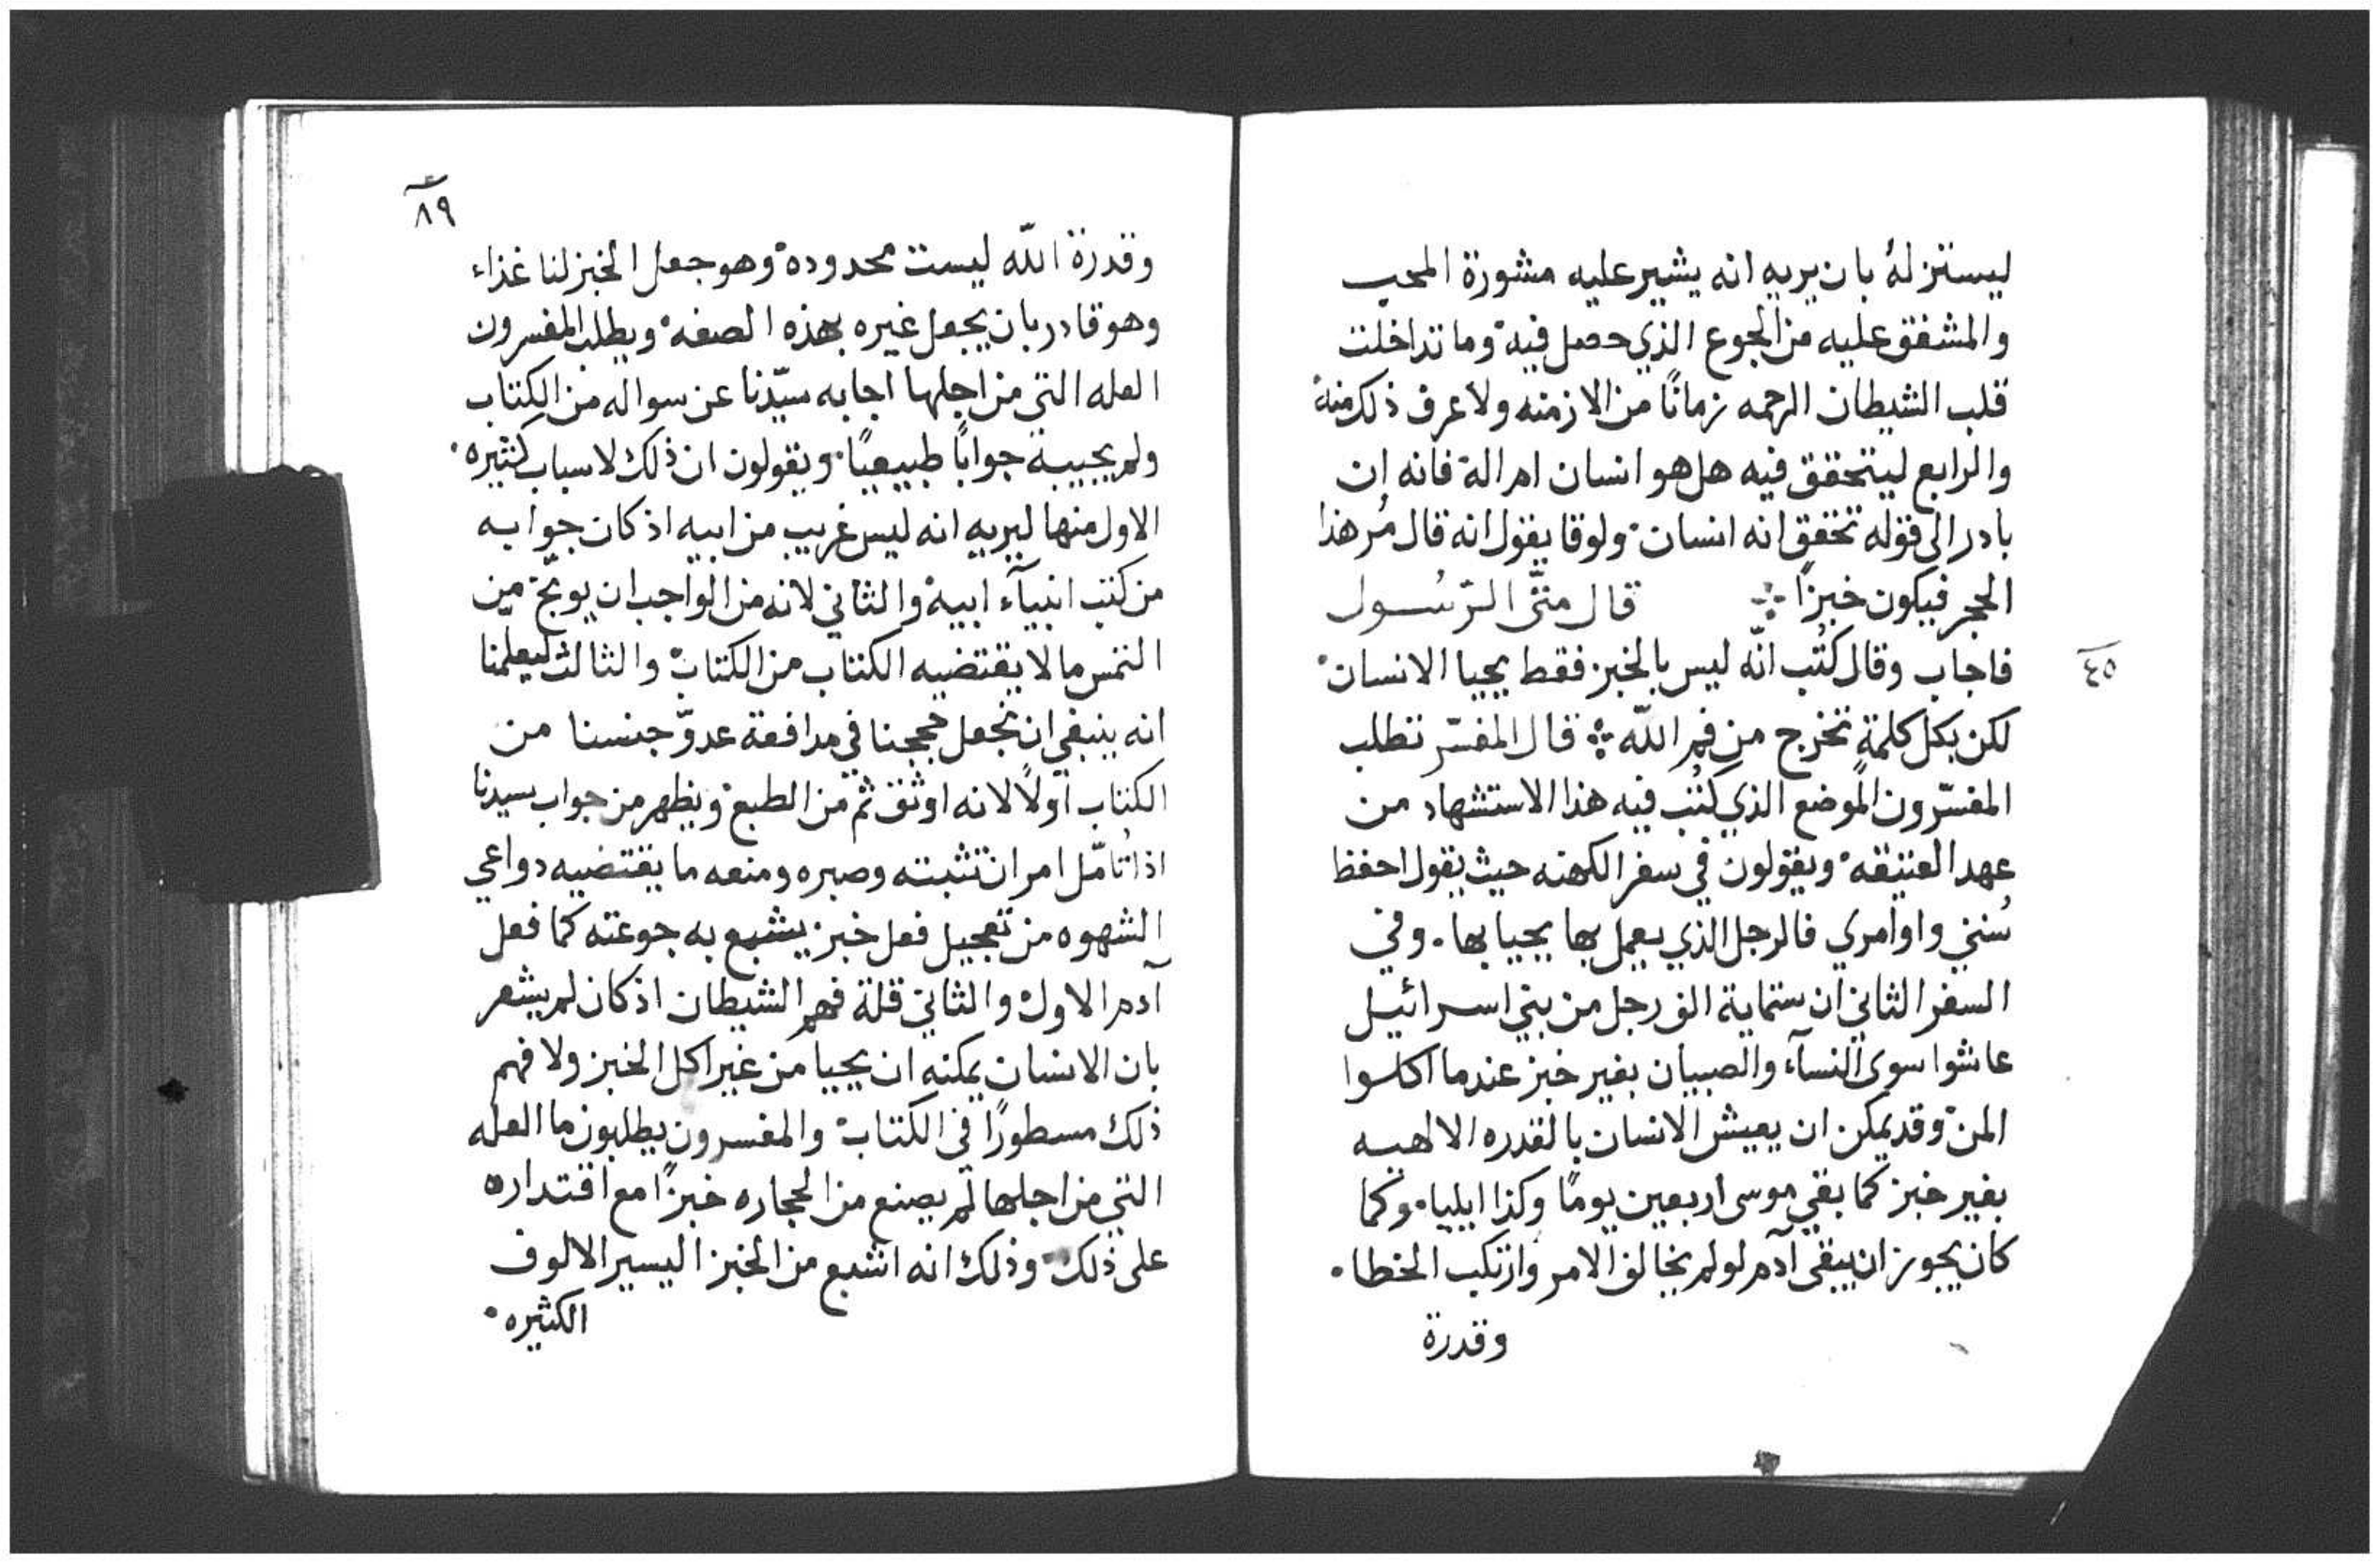 ليستنزلهُ بان يريه انه يشير عليه مشورة المحب
والمشفق عليه من الجوع الذي حصل فيه وما تداخلت
قلب الشيطان الرحمه زمانًا من الازمنه ولا عرف ذلك منه
والرابع ليتحقق فيه هل هو انسان ام اله فانه ان
بادر الى قوله تحقق انه انسان ولوقا يقول انه قال مُر هذا
الحجر فيكون خبزًا ܀ قال متَّى الرّسُول
٤٥
فاجاب وقال كُتب انّه ليس بالخبز فقط يحيا الانسان
لكن بكل كلمةٍ تخرج من فم اللّه ܀ قال المفسّر تطلب
المفسّرون الموضع الذي كُتب فيه هذا الاستشهاد من
عهد العتيقه ويقولون في سفر الكهنه حيث يقول احفظ
سُنني واوامري فالرجل الذي يعمل بها يحيا بها. وفي
السفر الثاني ان ستماية الف رجل من بني اسرائيل
عاشوا سوى النسآء والصبيان بغير خبز عندما اكلوا
المن وقد يمكن ان يعيش الانسان بالقدره الالهيه
بغير خبز كما بقي موسى اربعين يومًا وكذا ايليا. وكما
كان يجوز ان يبقى آدم لو لم يخالف الامر وارتكب الخطا.
وقدرة
٨٩
وقدرة اللّه ليست محدوده وهو جعل الخبز لنا غذاء
وهو قادر بان يجعل غيره بهذه الصفه ويطلب المفسرون
العله التي من اجلها اجابه سيّدنا عن سواله من الكتاب
ولم يجيبه جوابًا طبيعيًا. ويقولون ان ذلك لاسباب كثيره.
الاول منها ليريه انه ليس غريب من ابيه اذ كان جوابه
من كتب انبيآء ابيه والثاني لانه من الواجب ان يوبّخ من
التمس ما لا يقتضيه الكتاب من الكتاب والثالث ليعلمنا
انه ينبغي ان نجعل حججنا في مدافعة عدوّ جنسنا من
الكتاب اولاً لانه اوثق ثم من الطبع ويظهر من جواب سيدنا
اذا تُامّل امران تثبته وصبره ومنعه ما يقتضيه دواعي
الشهوه من تعجيل فعل خبز يشبع به جوعته كما فعل
آدم الاول والثاني قلة فهم الشيطان اذ كان لم يشعر
بان الانسان يمكنه ان يحيا من غير اكل الخبز ولا فهم
ذلك مسطورًا في الكتاب والمفسرون يطلبون ما العله
التي من اجلها لم يصنع من الحجاره خبزًا مع اقتداره
على ذلك. وذلك انه اشبع من الخبز اليسير الالوف
الكثيره.